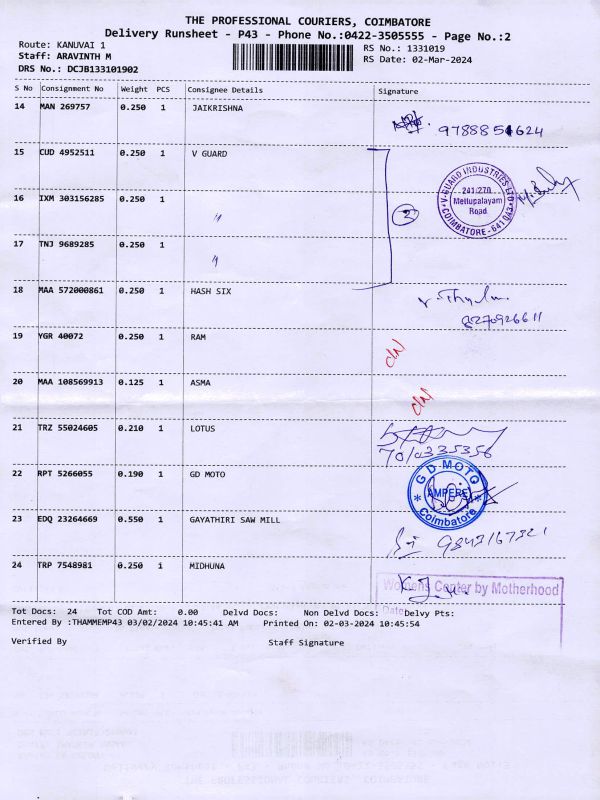 THE PROFESSIONAL COURIERS, COIMBATORE
Delivery Runsheet - P43 - Phone No.:0422-3505555 - Page No.:2
Route: KANUVAI 1
RS No.: 1331019
Staff: ARAVINTH M
RS Date: 02-Mar-2024
DRS No.: DCJB133101902
S No Consignment No Weight PCS Consignee Details Signature
14 MAN 269757 0.250 1 JAIKRISHNA
15 CUD 4952511 0.250 1 V GUARD
V-GUARD INDUSTRIES LTD
241/270
Mettupalayam
Road
COIMBATORE - 641 043
16 IXM 303156285 0.250 1 "
2
17 TNJ 9689285 0.250 1 "
18 MAA 572000861 0.250 1 HASH SIX
8270926611
19 YGR 40072 0.250 1 RAM
20 MAA 108569913 0.125 1 ASMA
21 TRZ 55024605 0.210 1 LOTUS
22 RPT 5266055 0.190 1 GD MOTO
G D MOTO
AMPERE
Coimbatore
23 EDQ 23264669 0.550 1 GAYATHIRI SAW MILL
24 TRP 7548981 0.250 1 MIDHUNA
Womens Center by Motherhood
Date
Tot Docs: 24 Tot COD Amt: 0.00 Delvd Docs: Non Delvd Docs: Delvy Pts:
Entered By :THAMMEMP43 03/02/2024 10:45:41 AM Printed On: 02-03-2024 10:45:54
Verified By Staff Signature